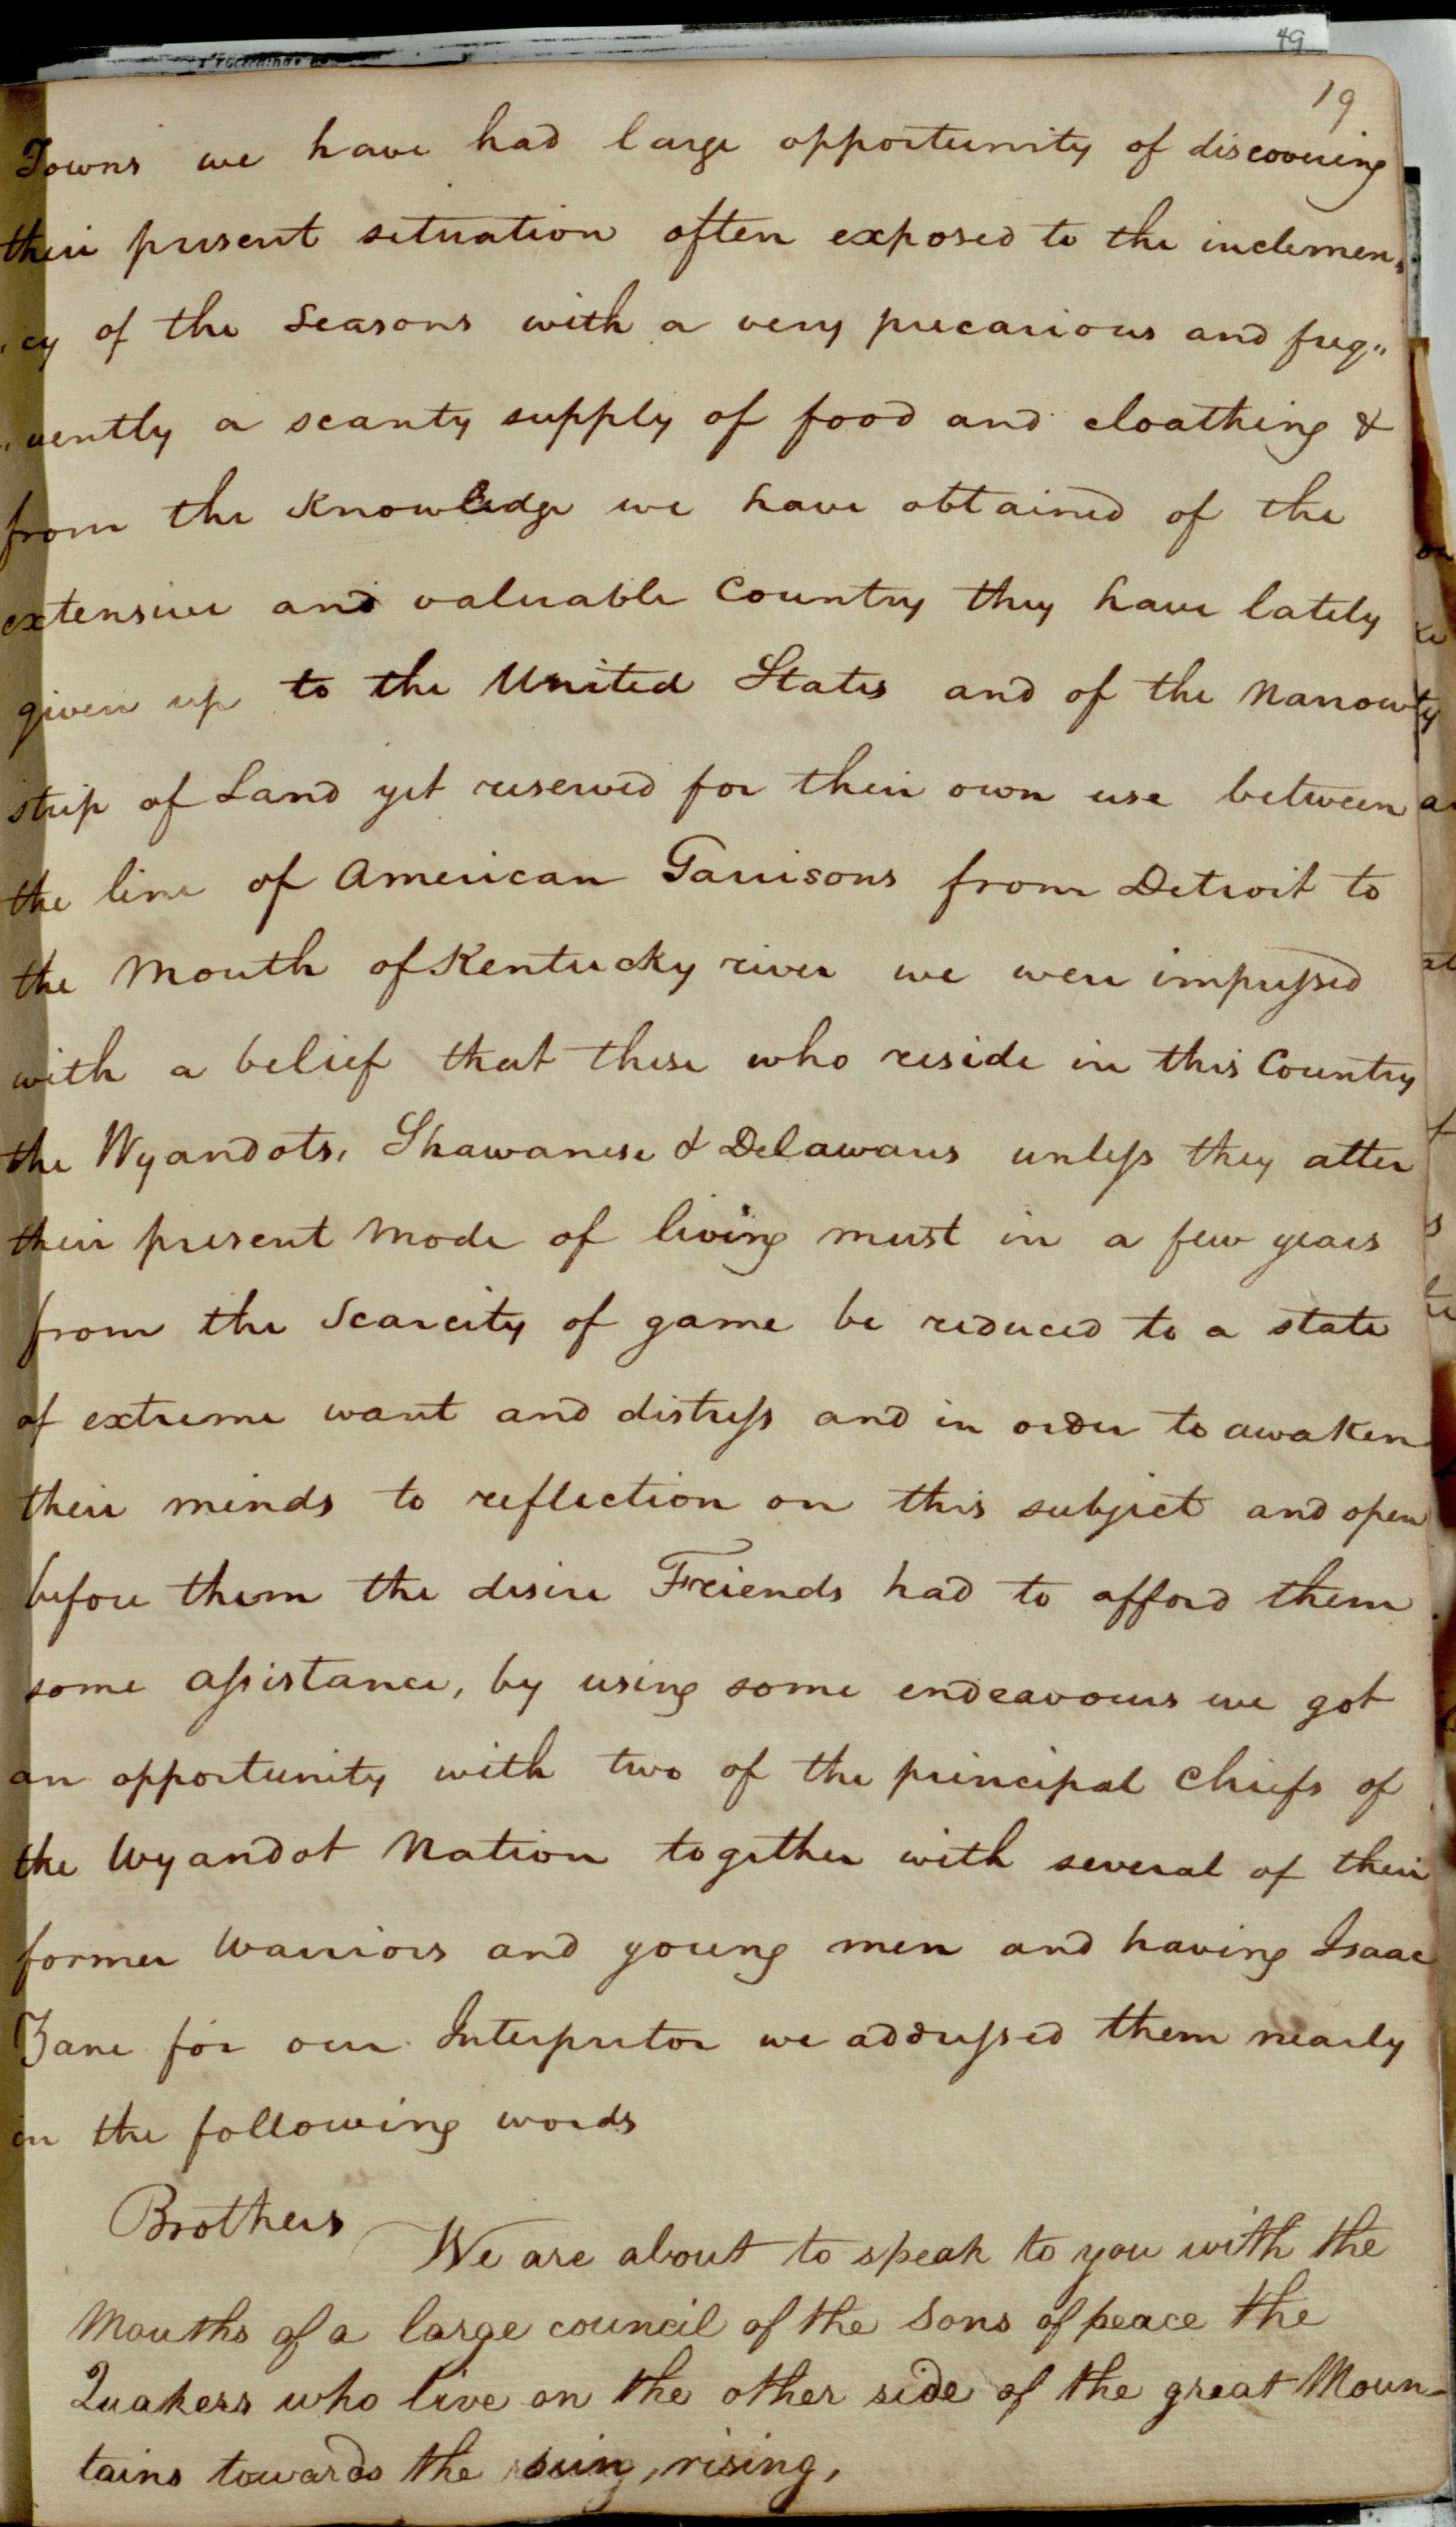 49
19
Towns we have had large opportunity of discovering
their present situation often exposed to the inclemen„
„cy of the Seasons with a very precarious and freq„
„uently a scanty supply of food and cloathing &
from the Knowledge we have obtained of the
extensive and valuable Country they have lately
given up to the United States and of the Narrow
strip of Land yet reserved for their own use between
the line of American Garrisons from Detroit to
the Mouth of Kentucky river we were impressed
with a belief that these who reside in this Country
the Wyandots, Shawanese & Delawares unless they alter
their present Mode of living must in a few years
from the Scarcity of game be reduced to a state
of extreme want and distress and in order to awaken
their minds to reflection on this subject and open
before them the desire Friends had to afford them
some assistance, by using some endeavours we got
an opportunity with two of the principal Chiefs of
the Wyandot Nation together with several of their
former Warriors and young men and having Isaac
Zane for our Interpretor we addressed them nearly
in the following words
Brothers
We are about to speak to you with the
Mouths of a large council of the Sons of peace the
Quakers who live on the other side of the great Moun-
tains towards the sun, rising,